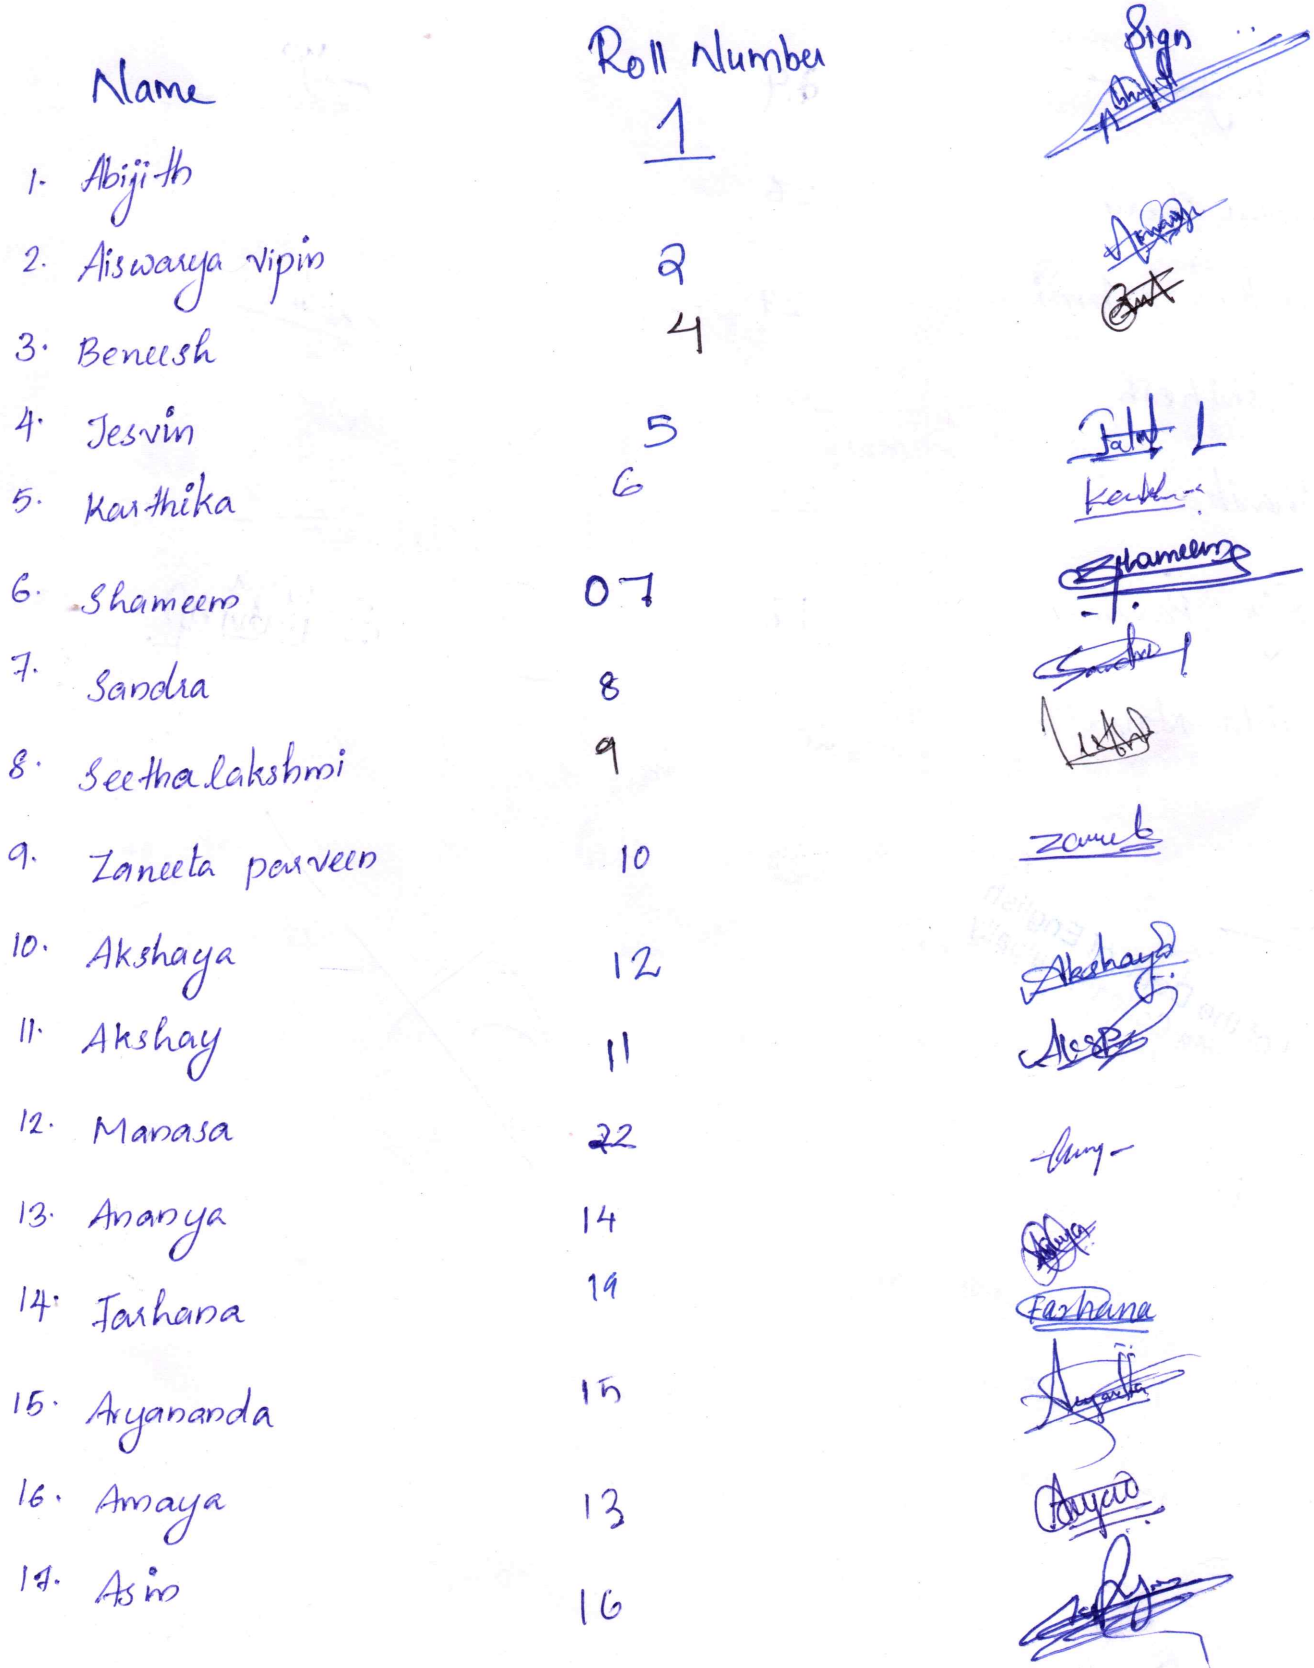 Name Roll Number Sign
1. Abijith 1 Abhijith
2. Aiswarya vipin 2
3. Beneesh 4
4. Jesvin 5
5. Karthika 6
6. Shameem 07 Shameem
7. Sandra 8 Sandra
8. Seethalakshmi 9
9. Zaneeta parveen 10
10. Akshaya 12 Akshaya
11. Akshay 11
12. Manasa 22
13. Ananya 14
14. Farhana 19 Farhana
15. Aryananda 15
16. Amaya 13
17. Asin 16